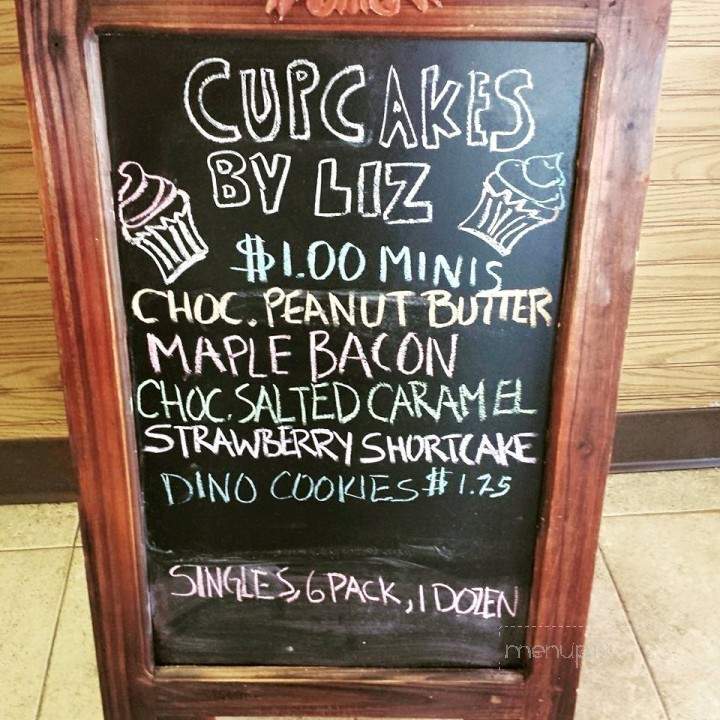 CUPCAKES
BY LIZ
$1.00 MINIS
CHOC. PEANUT BUTTER
MAPLE BACON
CHOC. SALTED CARAMEL
STRAWBERRY SHORTCAKE
DINO COOKIES $1.25
SINGLES, 6 PACK, 1 DOZEN